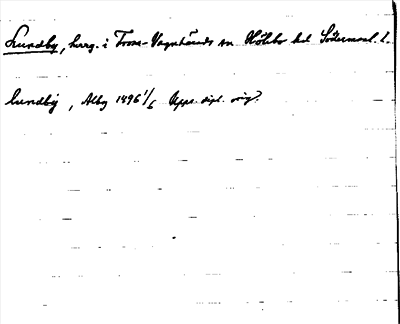 Lundby, herrg. i Trosa-Vagnhärads sn Hölebo hd Södermanl. l.
lundby, Alby 1496 1/6 Upps. dipl. orig?